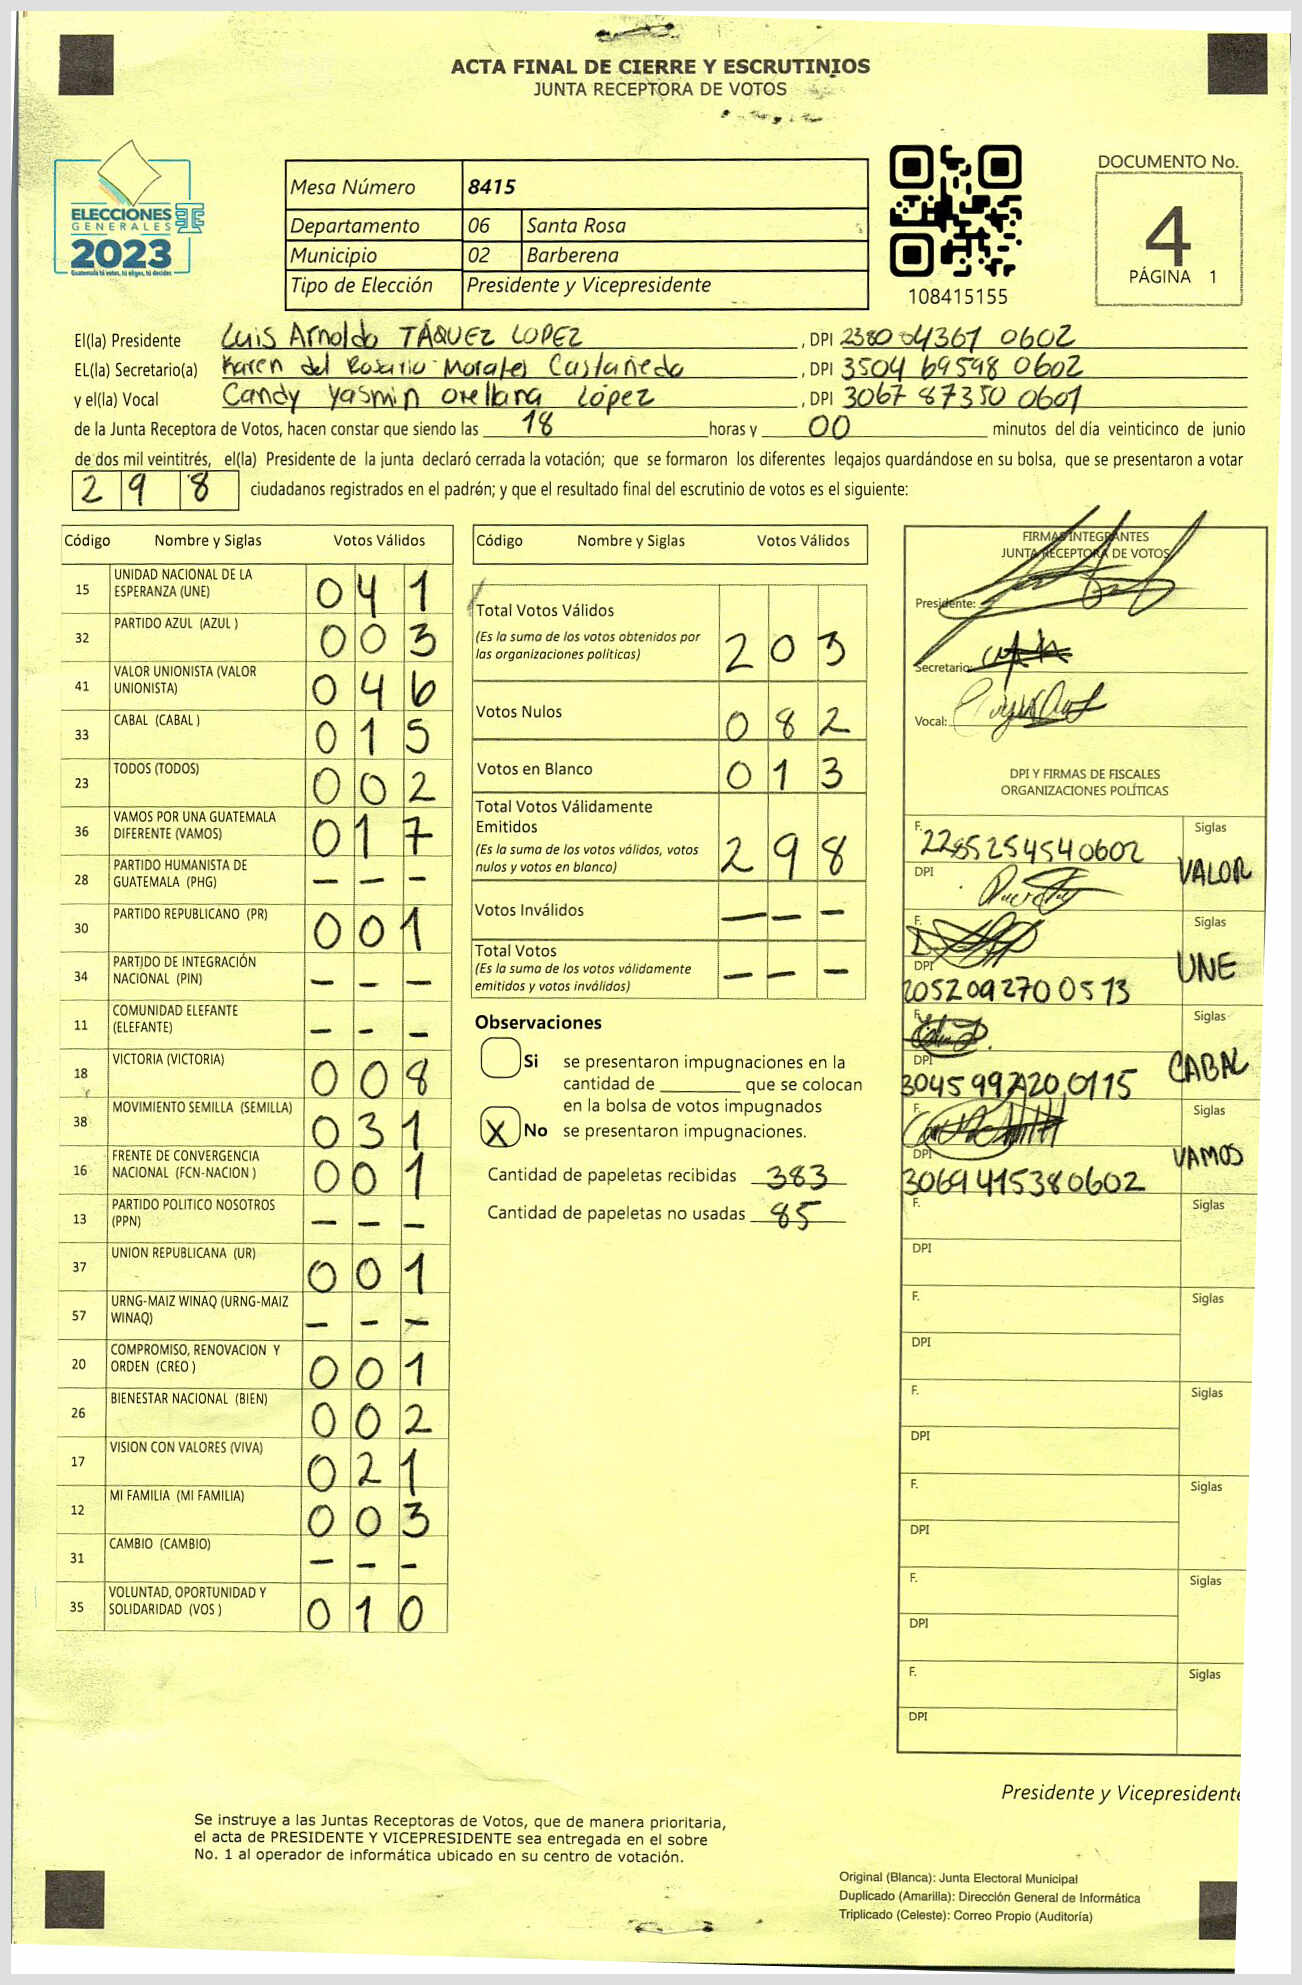 ACTA FINAL DE CIERRE Y ESCRUTINIOS
JUNTA RECEPTORA DE VOTOS
ELECCIONES
GENERALES
2023
Guatemala tú votas, tú eliges, tú decides
Mesa Número 8415
Departamento 06 Santa Rosa
Municipio 02 Barberena
Tipo de Elección Presidente y Vicepresidente
108415155
DOCUMENTO No.
4
PÁGINA 1
El(la) Presidente Luis Arnoldo TÁQUEZ LOPEZ, DPI 2380 04367 0602
EL(la) Secretario(a) Karen del Rosario Morales Castañeda, DPI 3504 69598 0602
y el(la) Vocal Candy Yasmin Orellana López, DPI 3067 87350 0601
de la Junta Receptora de Votos, hacen constar que siendo las 18 horas y 00 minutos del día veinticinco de junio
de dos mil veintitrés, el(la) Presidente de la junta declaró cerrada la votación; que se formaron los diferentes legajos guardándose en su bolsa, que se presentaron a votar
298 ciudadanos registrados en el padrón; y que el resultado final del escrutinio de votos es el siguiente:
Código Nombre y Siglas Votos Válidos
15 UNIDAD NACIONAL DE LA ESPERANZA (UNE) 041
32 PARTIDO AZUL (AZUL ) 003
41 VALOR UNIONISTA (VALOR UNIONISTA) 046
33 CABAL (CABAL ) 015
23 TODOS (TODOS) 002
36 VAMOS POR UNA GUATEMALA DIFERENTE (VAMOS) 017
28 PARTIDO HUMANISTA DE GUATEMALA (PHG) – – –
30 PARTIDO REPUBLICANO (PR) 001
34 PARTIDO DE INTEGRACIÓN NACIONAL (PIN) – – –
11 COMUNIDAD ELEFANTE (ELEFANTE) – – –
18 VICTORIA (VICTORIA) 008
38 MOVIMIENTO SEMILLA (SEMILLA) 031
16 FRENTE DE CONVERGENCIA NACIONAL (FCN-NACION ) 001
13 PARTIDO POLITICO NOSOTROS (PPN) – – –
37 UNION REPUBLICANA (UR) 001
57 URNG-MAIZ WINAQ (URNG-MAIZ WINAQ) – – –
20 COMPROMISO, RENOVACION Y ORDEN (CREO ) 001
26 BIENESTAR NACIONAL (BIEN) 002
17 VISION CON VALORES (VIVA) 021
12 MI FAMILIA (MI FAMILIA) 003
31 CAMBIO (CAMBIO) – – –
35 VOLUNTAD, OPORTUNIDAD Y SOLIDARIDAD (VOS ) 010
Código Nombre y Siglas Votos Válidos
Total Votos Válidos
(Es la suma de los votos obtenidos por las organizaciones políticas) 203
Votos Nulos 082
Votos en Blanco 013
Total Votos Válidamente Emitidos
(Es la suma de los votos válidos, votos nulos y votos en blanco) 298
Votos Inválidos – – –
Total Votos
(Es la suma de los votos válidamente emitidos y votos inválidos) – – –
Observaciones
Si se presentaron impugnaciones en la
cantidad de ________ que se colocan
en la bolsa de votos impugnados
X No se presentaron impugnaciones.
Cantidad de papeletas recibidas 383
Cantidad de papeletas no usadas 85
FIRMAS INTEGRANTES
JUNTA RECEPTORA DE VOTOS
Presidente:
Secretario:
Vocal:
DPI Y FIRMAS DE FISCALES
ORGANIZACIONES POLÍTICAS
F. 2285254540602 Siglas
DPI VALOR
F. Siglas
DPI UNE
2052092700513
F. Siglas
DPI CABAL
3045997200115
F. Siglas
DPI VAMOS
3069415380602
F. Siglas
DPI
F. Siglas
DPI
F. Siglas
DPI
F. Siglas
DPI
F. Siglas
DPI
F. Siglas
DPI
Presidente y Vicepresidente
Se instruye a las Juntas Receptoras de Votos, que de manera prioritaria,
el acta de PRESIDENTE Y VICEPRESIDENTE sea entregada en el sobre
No. 1 al operador de informática ubicado en su centro de votación.
Original (Blanca): Junta Electoral Municipal
Duplicado (Amarilla): Dirección General de Informática
Triplicado (Celeste): Correo Propio (Auditoría)